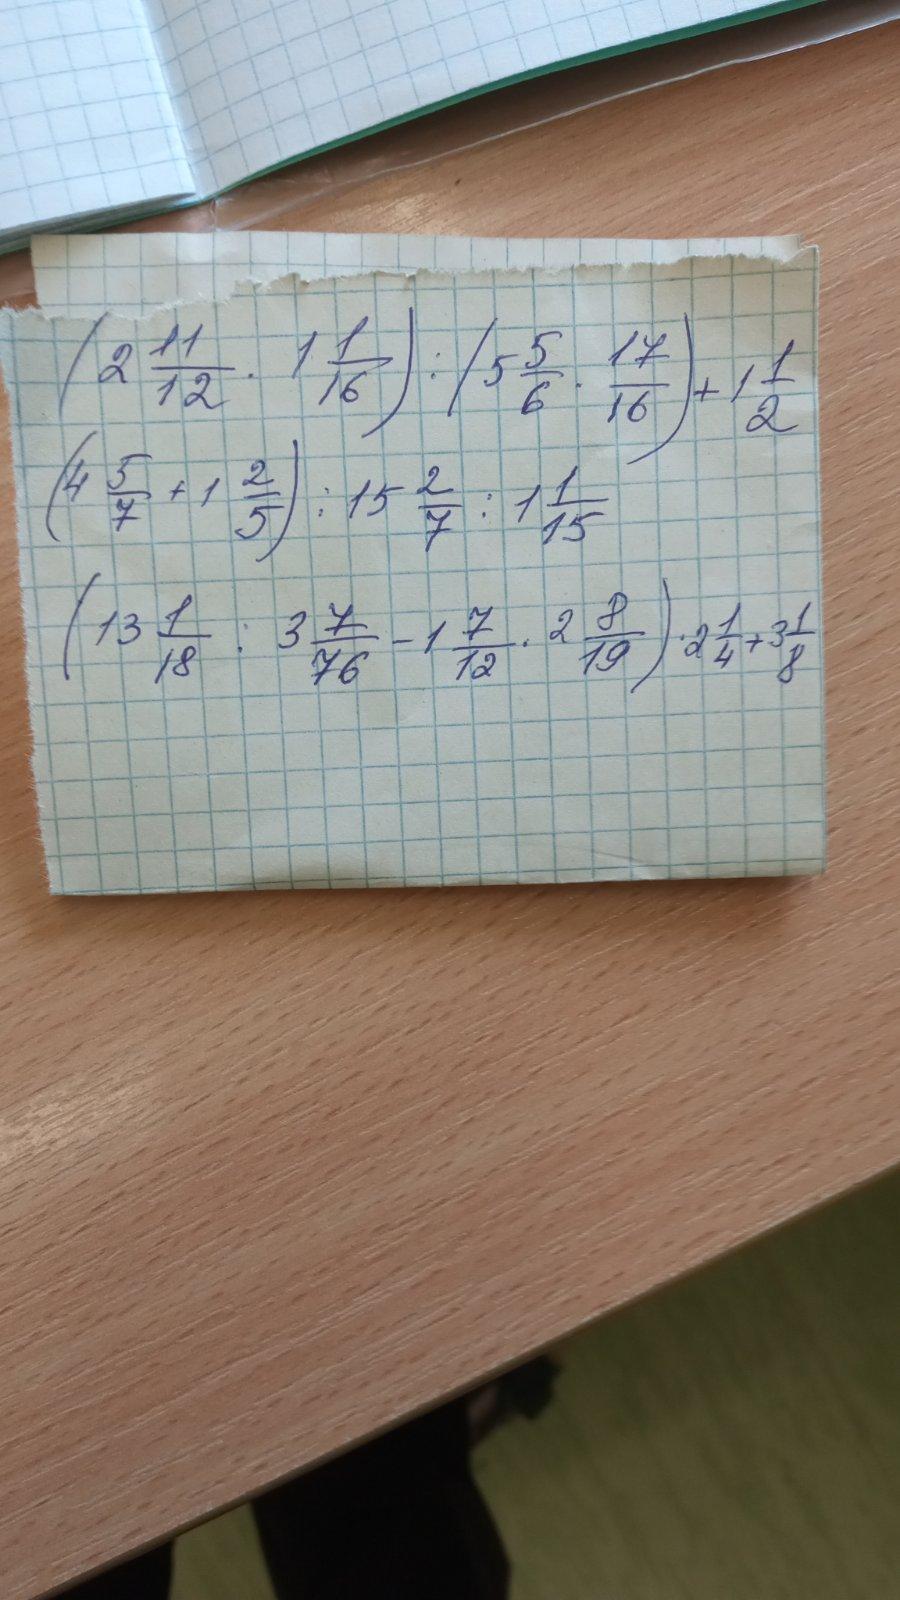 (2 11/12 · 1 1/16) : (5 5/6 · 17/16) + 1 1/2
(4 5/7 + 1 2/5) : 15 2/7 : 1 1/15
(13 1/18 : 3 7/76 - 1 7/12 · 2 8/19) · 2 1/4 + 3 1/8